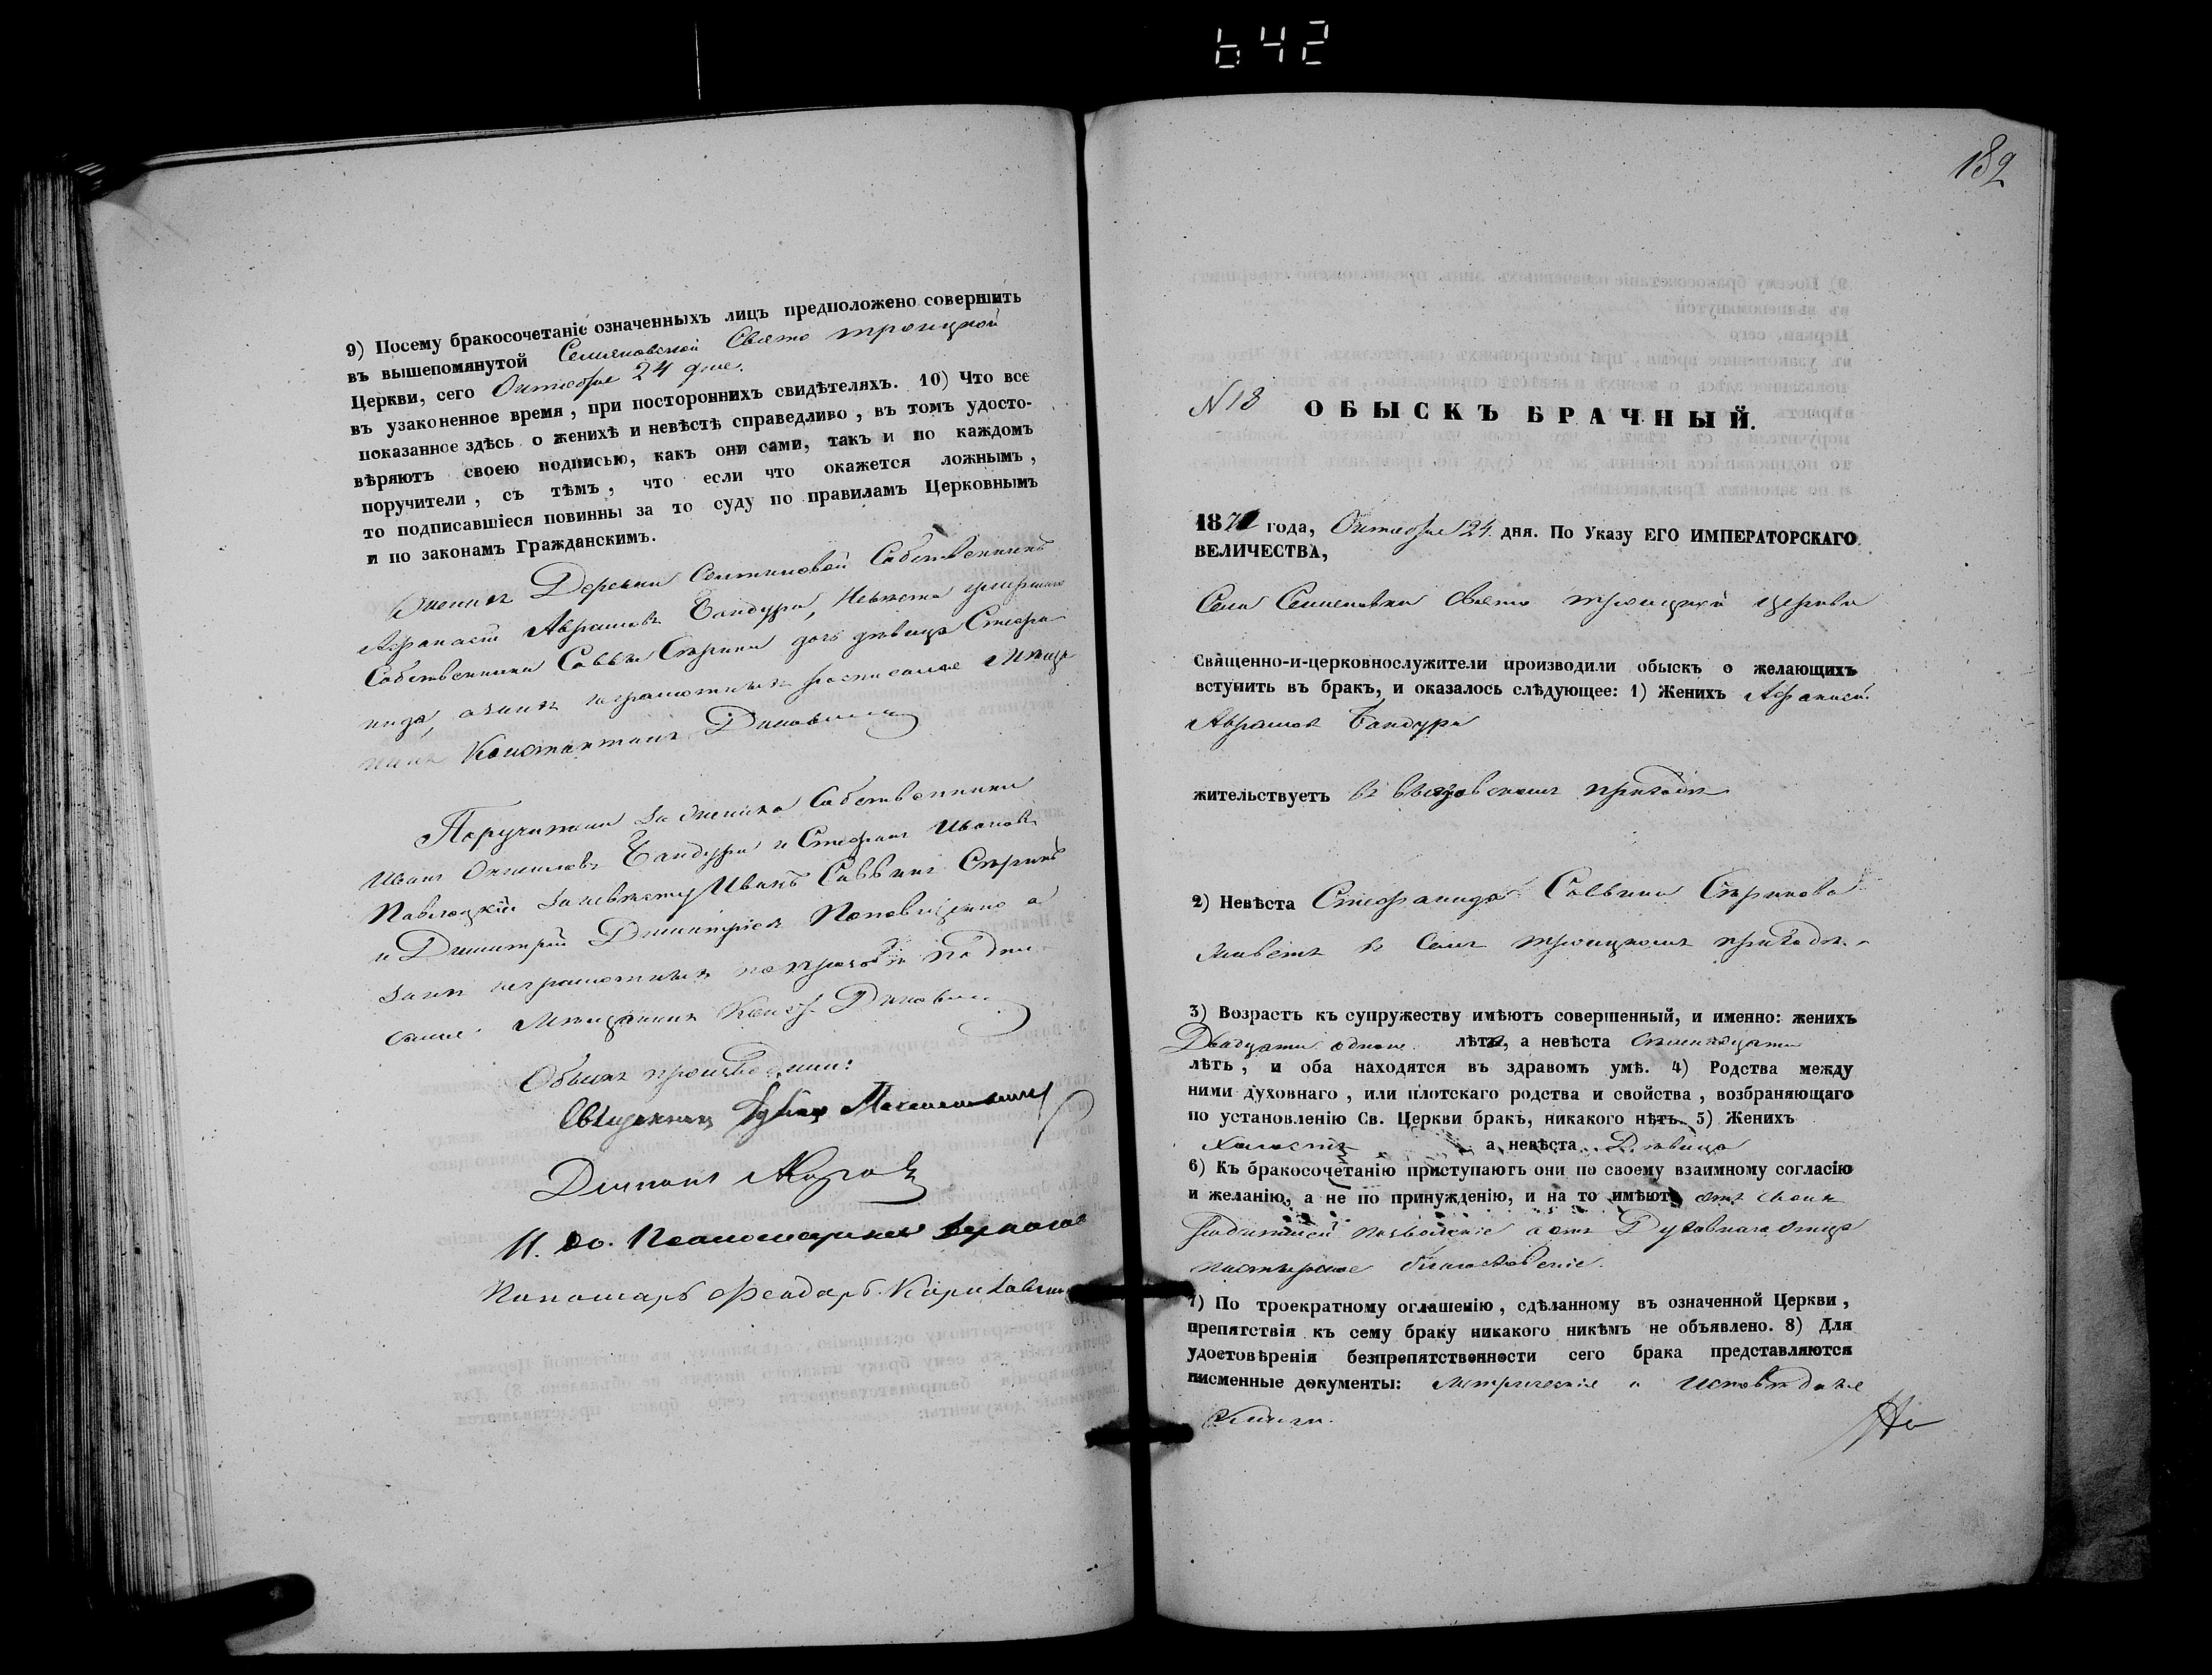 642
9) Посему бракосочетаніе означенныхъ лицъ предположено совершить
въ вышепомянутой Семеновской Свято троицкой
Церкви, сего Октября 24 дня.
въ узаконенное время, при постороннихъ свидѣтеляхъ. 10) Что все
показанное здѣсь о женихѣ и невѣстѣ справедливо, въ томъ удосто-
вѣряютъ своею подписью, какъ они сами, такъ и по каждомъ
поручители, съ тѣмъ, что если что окажется ложнымъ,
то подписавшіеся повинны за то суду по правиламъ Церковнымъ
и по законамъ Гражданскимъ.
Женихъ Деревни Собственникъ
Афанасій Авраамовъ Бандура, Невѣста умершаго
Собственника Саввы Сѣрика дочь дѣвица Стефа
нида, а за нихъ неграмотныхъ росписался Мѣща
нинъ Константинъ
Поручители за жениха Собственники
Иванъ Бандура и Стефанъ Ивановъ
Павлоцкій за невѣсту Иванъ Саввинъ Сѣрикъ
и Димитрій Димитріевъ а
за нихъ неграмотныхъ по прозьбѣ подпи
сался Мѣщанинъ Конст.
Обыскъ производили:
Священникъ
Діаконъ
И. до. Пономарь
Пономарь Феодоръ
182
N 18 ОБЫСКЪ БРАЧНЫЙ.
187 года, Октября 24 дня. По Указу ЕГО ИМПЕРАТОРСКАГО
ВЕЛИЧЕСТВА,
Села Семеновки Свято троицкой церкви
Священно-и-церковнослужители производили обыскъ о желающихъ
вступить въ бракъ, и оказалось слѣдующее: 1) Женихъ Афанасій
Авраамовъ Бандура
жительствуетъ въ приходѣ
2) Невѣста Стефанида Саввина Сѣрикова
живетъ въ Семъ троицкомъ приходѣ.
3) Возрастъ къ супружеству имѣютъ совершенный, и именно: женихъ
Двадцати одного лѣтъ, а невѣста Семнадцати
лѣтъ, и оба находятся въ здравомъ умѣ. 4) Родства между
ними духовнаго, или плотскаго родства и свойства, возбраняющаго
по установленію Св. Церкви бракъ, никакого нѣтъ. 5) Женихъ
Холостъ а невѣста Дѣвица
6) Къ бракосочетанію приступаютъ они по своему взаимному согласію
и желанію, а не по принужденію, и на то имѣютъ отъ своихъ
родителей позволеніе а отъ Духовнаго отца
пастырское благословеніе.
7) По троекратному оглашенію, сдѣланному въ означенной Церкви,
препятствія къ сему браку никакого никѣмъ не объявлено. 8) Для
удостовѣренія безпрепятственности сего брака представляются
писменные документы: Метрическіе и Исповѣдные
Книги.